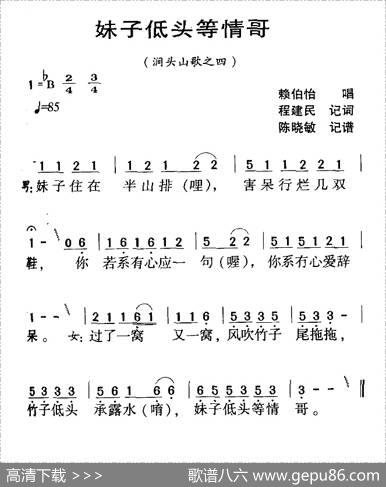 妹子低头等情哥
(涧头山歌之四)
1=♭B 2/4 3/4
♩=85
赖伯怡 唱
程建民 记词
陈晓敏 记谱
1 1 2 1 | 1 2 1 2 2 | 5 1 1 2 1 2 1
男:妹子住在 半山排(哩), 害呆行烂几双
1 - \ 0 6 | 1 6 1 6 1 2 | 5 2 2 | 5 1 5 1 2 1
鞋, 你 若系有心应一 句(喔), 你系冇心爱辞
1 - \ | 2 1 1 1 6 1 | 1 6 1 1 | 5 1 5 3 | 5 3 3 -
呆。女:过了一窝 又一窝, 风吹竹子 尾拖拖,
5 3 3 3 | 5 6 1 6 6 | 6 5 3 5 5 3 | 3 - \
竹子低头 承露水(唷), 妹子低头等情 哥。
高清下载 >>>
歌谱八六 www.gepu86.com